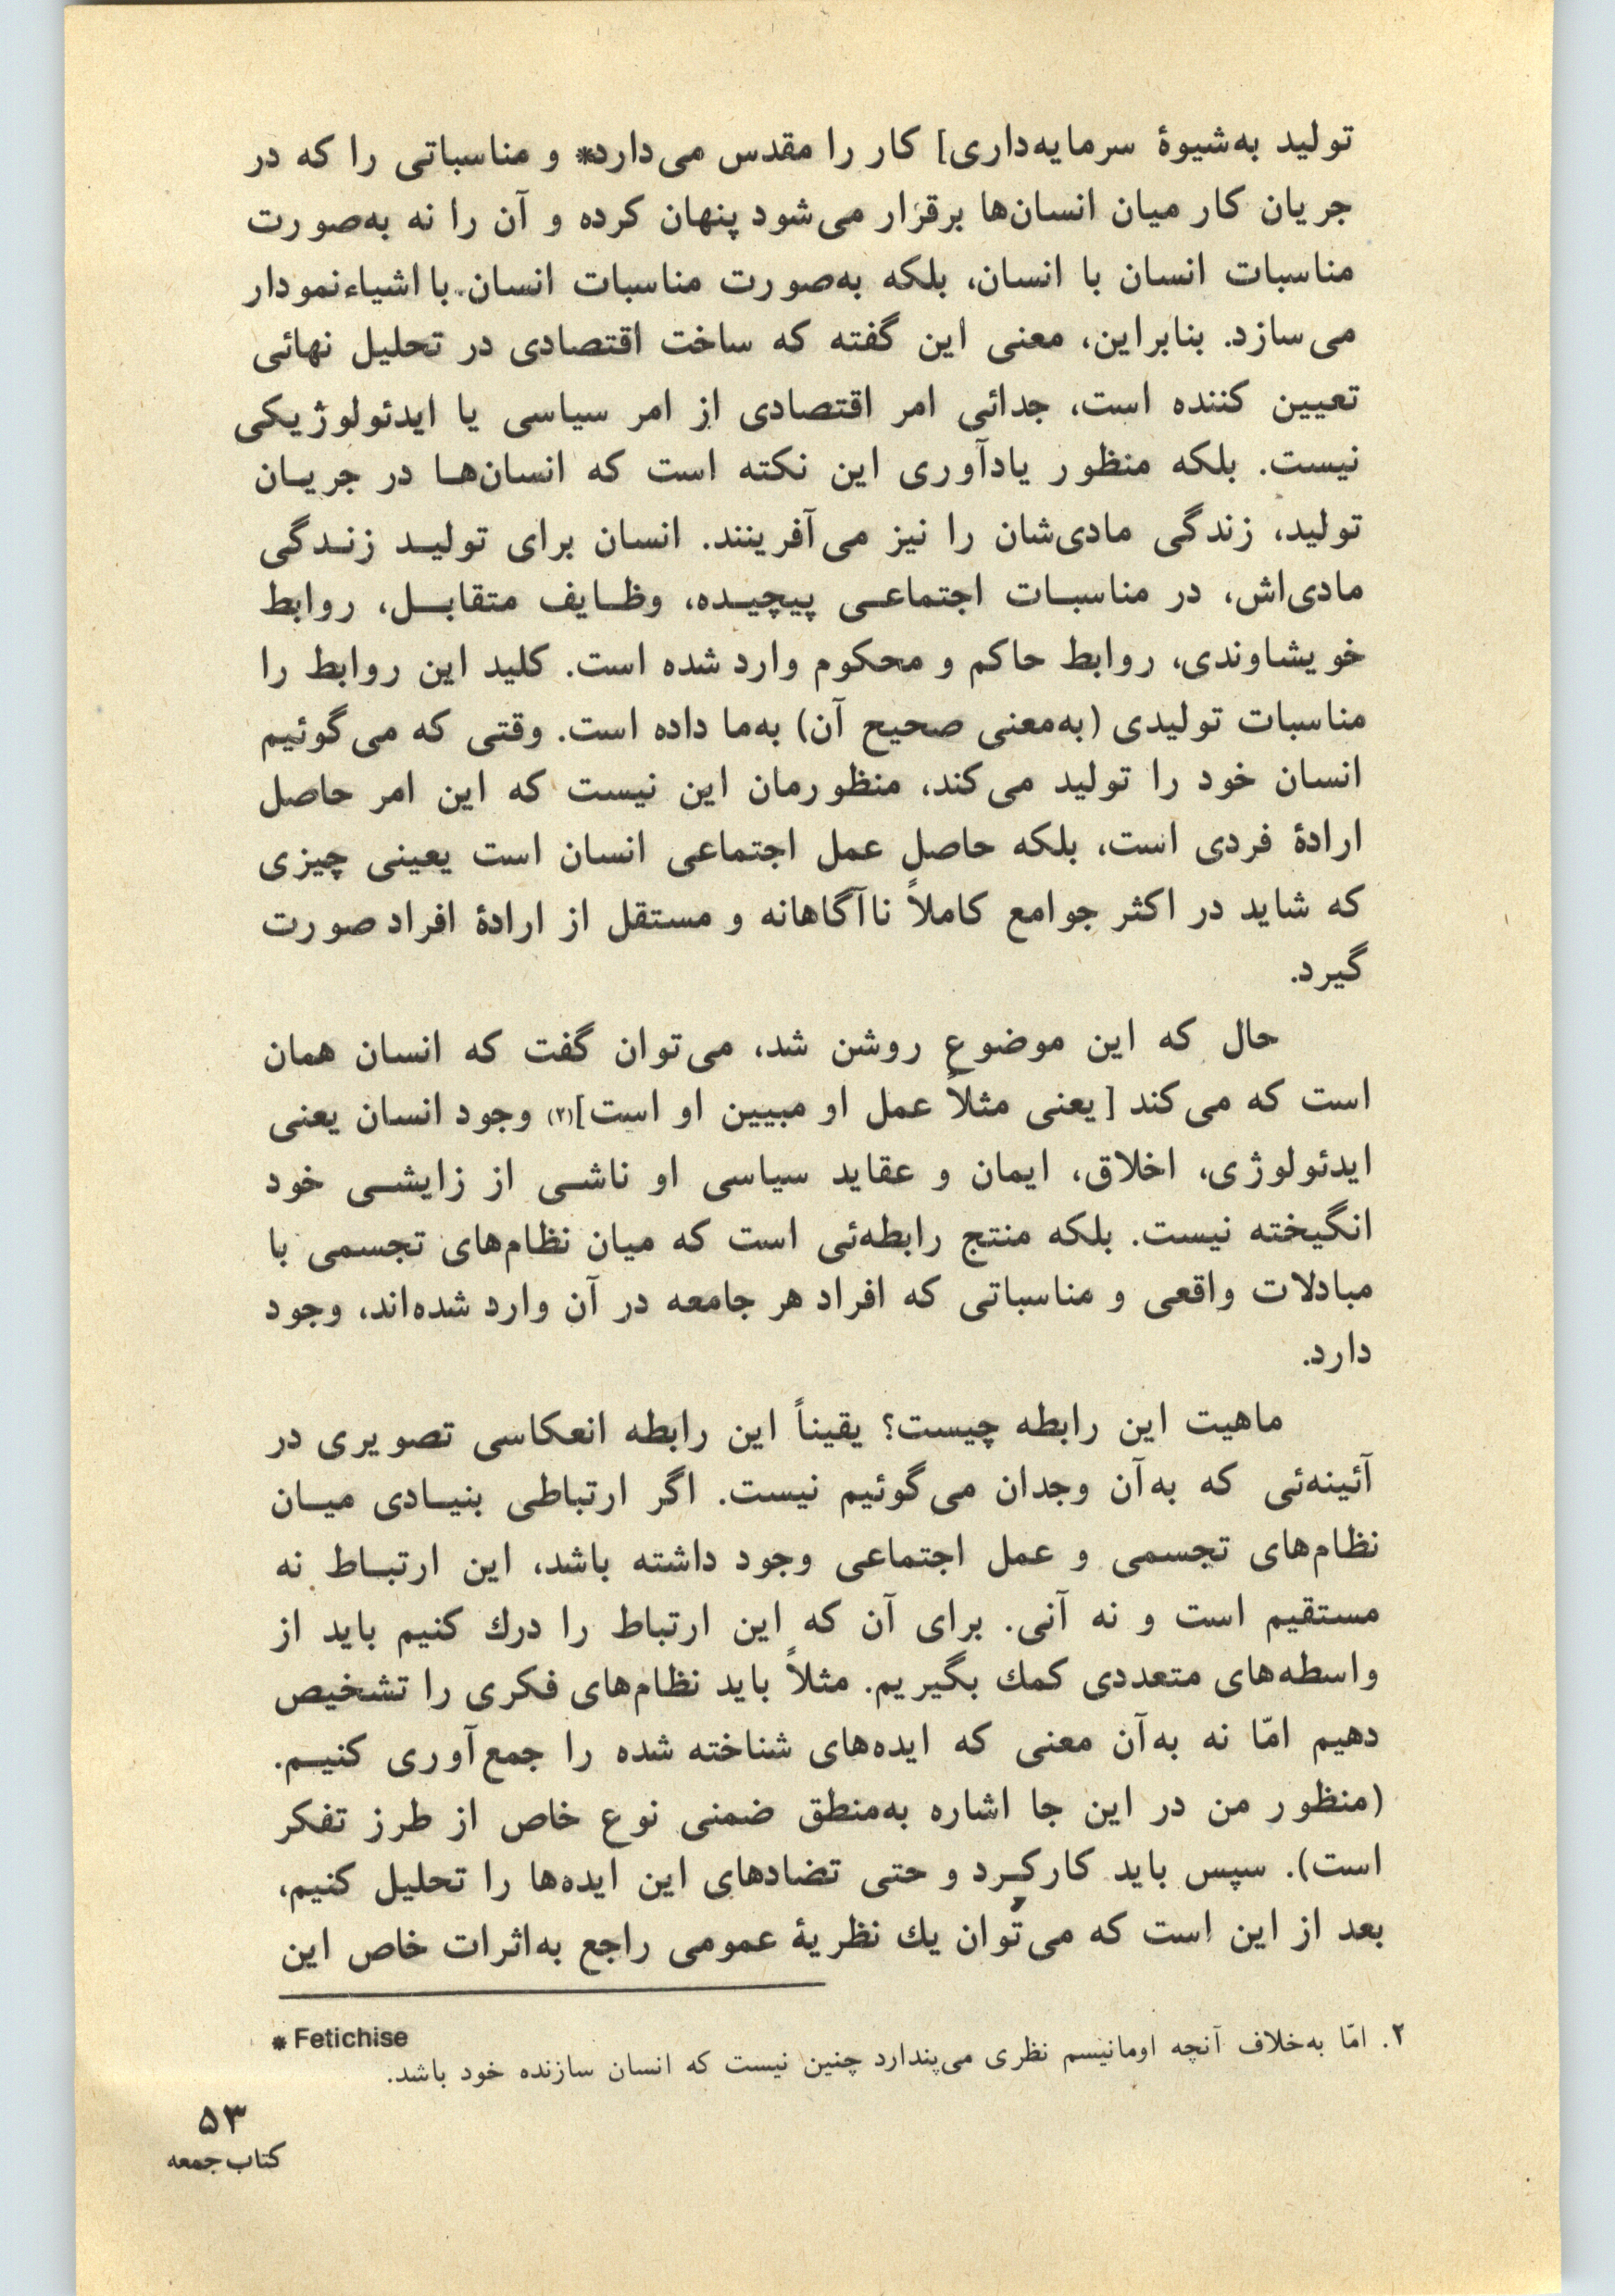 تولید به‌شیوهٔ سرمایه‌داری] کار را مقدس می‌دارد* و مناسباتی را که در
جریان کار میان انسان‌ها برقرار می‌شود پنهان کرده و آن را نه به‌صورت
مناسبات انسان با انسان، بلکه به‌صورت مناسبات انسان با اشیاء نمودار
می‌سازد. بنابراین، معنی این گفته که ساخت اقتصادی در تحلیل نهائی
تعیین کننده است، جدائی امر اقتصادی از امر سیاسی یا ایدئولوژیکی
نیست. بلکه منظور یادآوری این نکته است که انسان‌هـا در جریـان
تولید، زندگی مادی‌شان را نیز می‌آفرینند. انسان برای تولیـد زنـدگی
مادی‌اش، در مناسبـات اجتماعـی پیچیـده، وظـایف متقابـل، روابط
خویشاوندی، روابط حاکم و محکوم وارد شده است. کلید این روابط را
مناسبات تولیدی (به‌معنی صحیح آن) به‌ما داده است. وقتی که می‌گوئیم
انسان خود را تولید می‌کند، منظورمان این نیست که این امر حاصل
ارادهٔ فردی است، بلکه حاصل عمل اجتماعی انسان است یعینی چیزی
که شاید در اکثر جوامع کاملاً ناآگاهانه و مستقل از ارادهٔ افراد صورت
گیرد.
حال که این موضوع روشن شد، می‌توان گفت که انسان همان
است که می‌کند [یعنی مثلاً عمل او مبیین او است](۲) وجود انسان یعنی
ایدئولوژی، اخلاق، ایمان و عقاید سیاسی او ناشـی از زایشـی خود
انگیخته نیست. بلکه منتج رابطه‌ئی است که میان نظام‌های تجسمی با
مبادلات واقعی و مناسباتی که افراد هر جامعه در آن وارد شده‌اند، وجود
دارد.
ماهیت این رابطه چیست؟ یقیناً این رابطه انعکاسی تصویری در
آئینه‌ئی که به‌آن وجدان می‌گوئیم نیست. اگر ارتباطی بنیـادی میـان
نظام‌های تجسمی و عمل اجتماعی وجود داشته باشد، این ارتبـاط نه
مستقیم است و نه آنی. برای آن که این ارتباط را درك کنیم باید از
واسطه‌های متعددی کمك بگیریم. مثلاً باید نظام‌های فکری را تشخیص
دهیم امّا نه به‌آن معنی که ایده‌های شناخته شده را جمع‌آوری کنیـم.
(منظور من در این جا اشاره به‌منطق ضمنی نوع خاص از طرز تفکر
است). سپس باید کارکـرد و حتی تضادهای این ایده‌ها را تحلیل کنیم،
بعد از این است که می‌توان یك نظریهٔ عمومی راجع به‌اثرات خاص این
* Fetichise
۲. امّا به‌خلاف آنچه اومانیسم نظری می‌پندارد چنین نیست که انسان سازنده خود باشد.
۵۳
کتاب جمعه